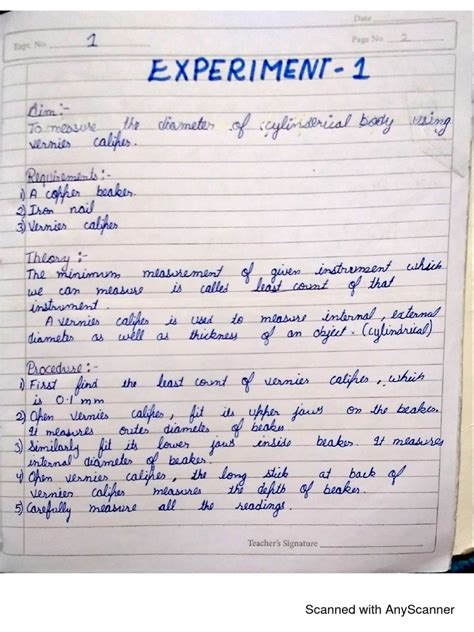 Date
Expt. No. 1
Page No. 2
EXPERIMENT-1
Aim:-
To measure the diameter of cylinderical body using
vernies calipes.
Requirements:-
1) A copper beaker.
2) Iron nail
3) Vernies calipes
Theory:-
The minimum measurement of given instrument which
we can measure is called least count of that
instrument.
A vernies calipes is used to measure internal, external
diameter as well as thickness of an object. (cylindrical)
Procedure:-
1) First find the least count of vernies calipes, which
is 0.1 mm
2) Open vernies calipes, fit its upper jaws on the beaker.
It measures outer diameter of beaker.
3) Similarly fit its lower jaws inside beaker. It measures
internal diameter of beaker.
4) Open vernies calipes, the long stik at back of
vernies calipes measures the depth of beaker.
5) Carefully measure all the readings.
Teacher's Signature
Scanned with AnyScanner